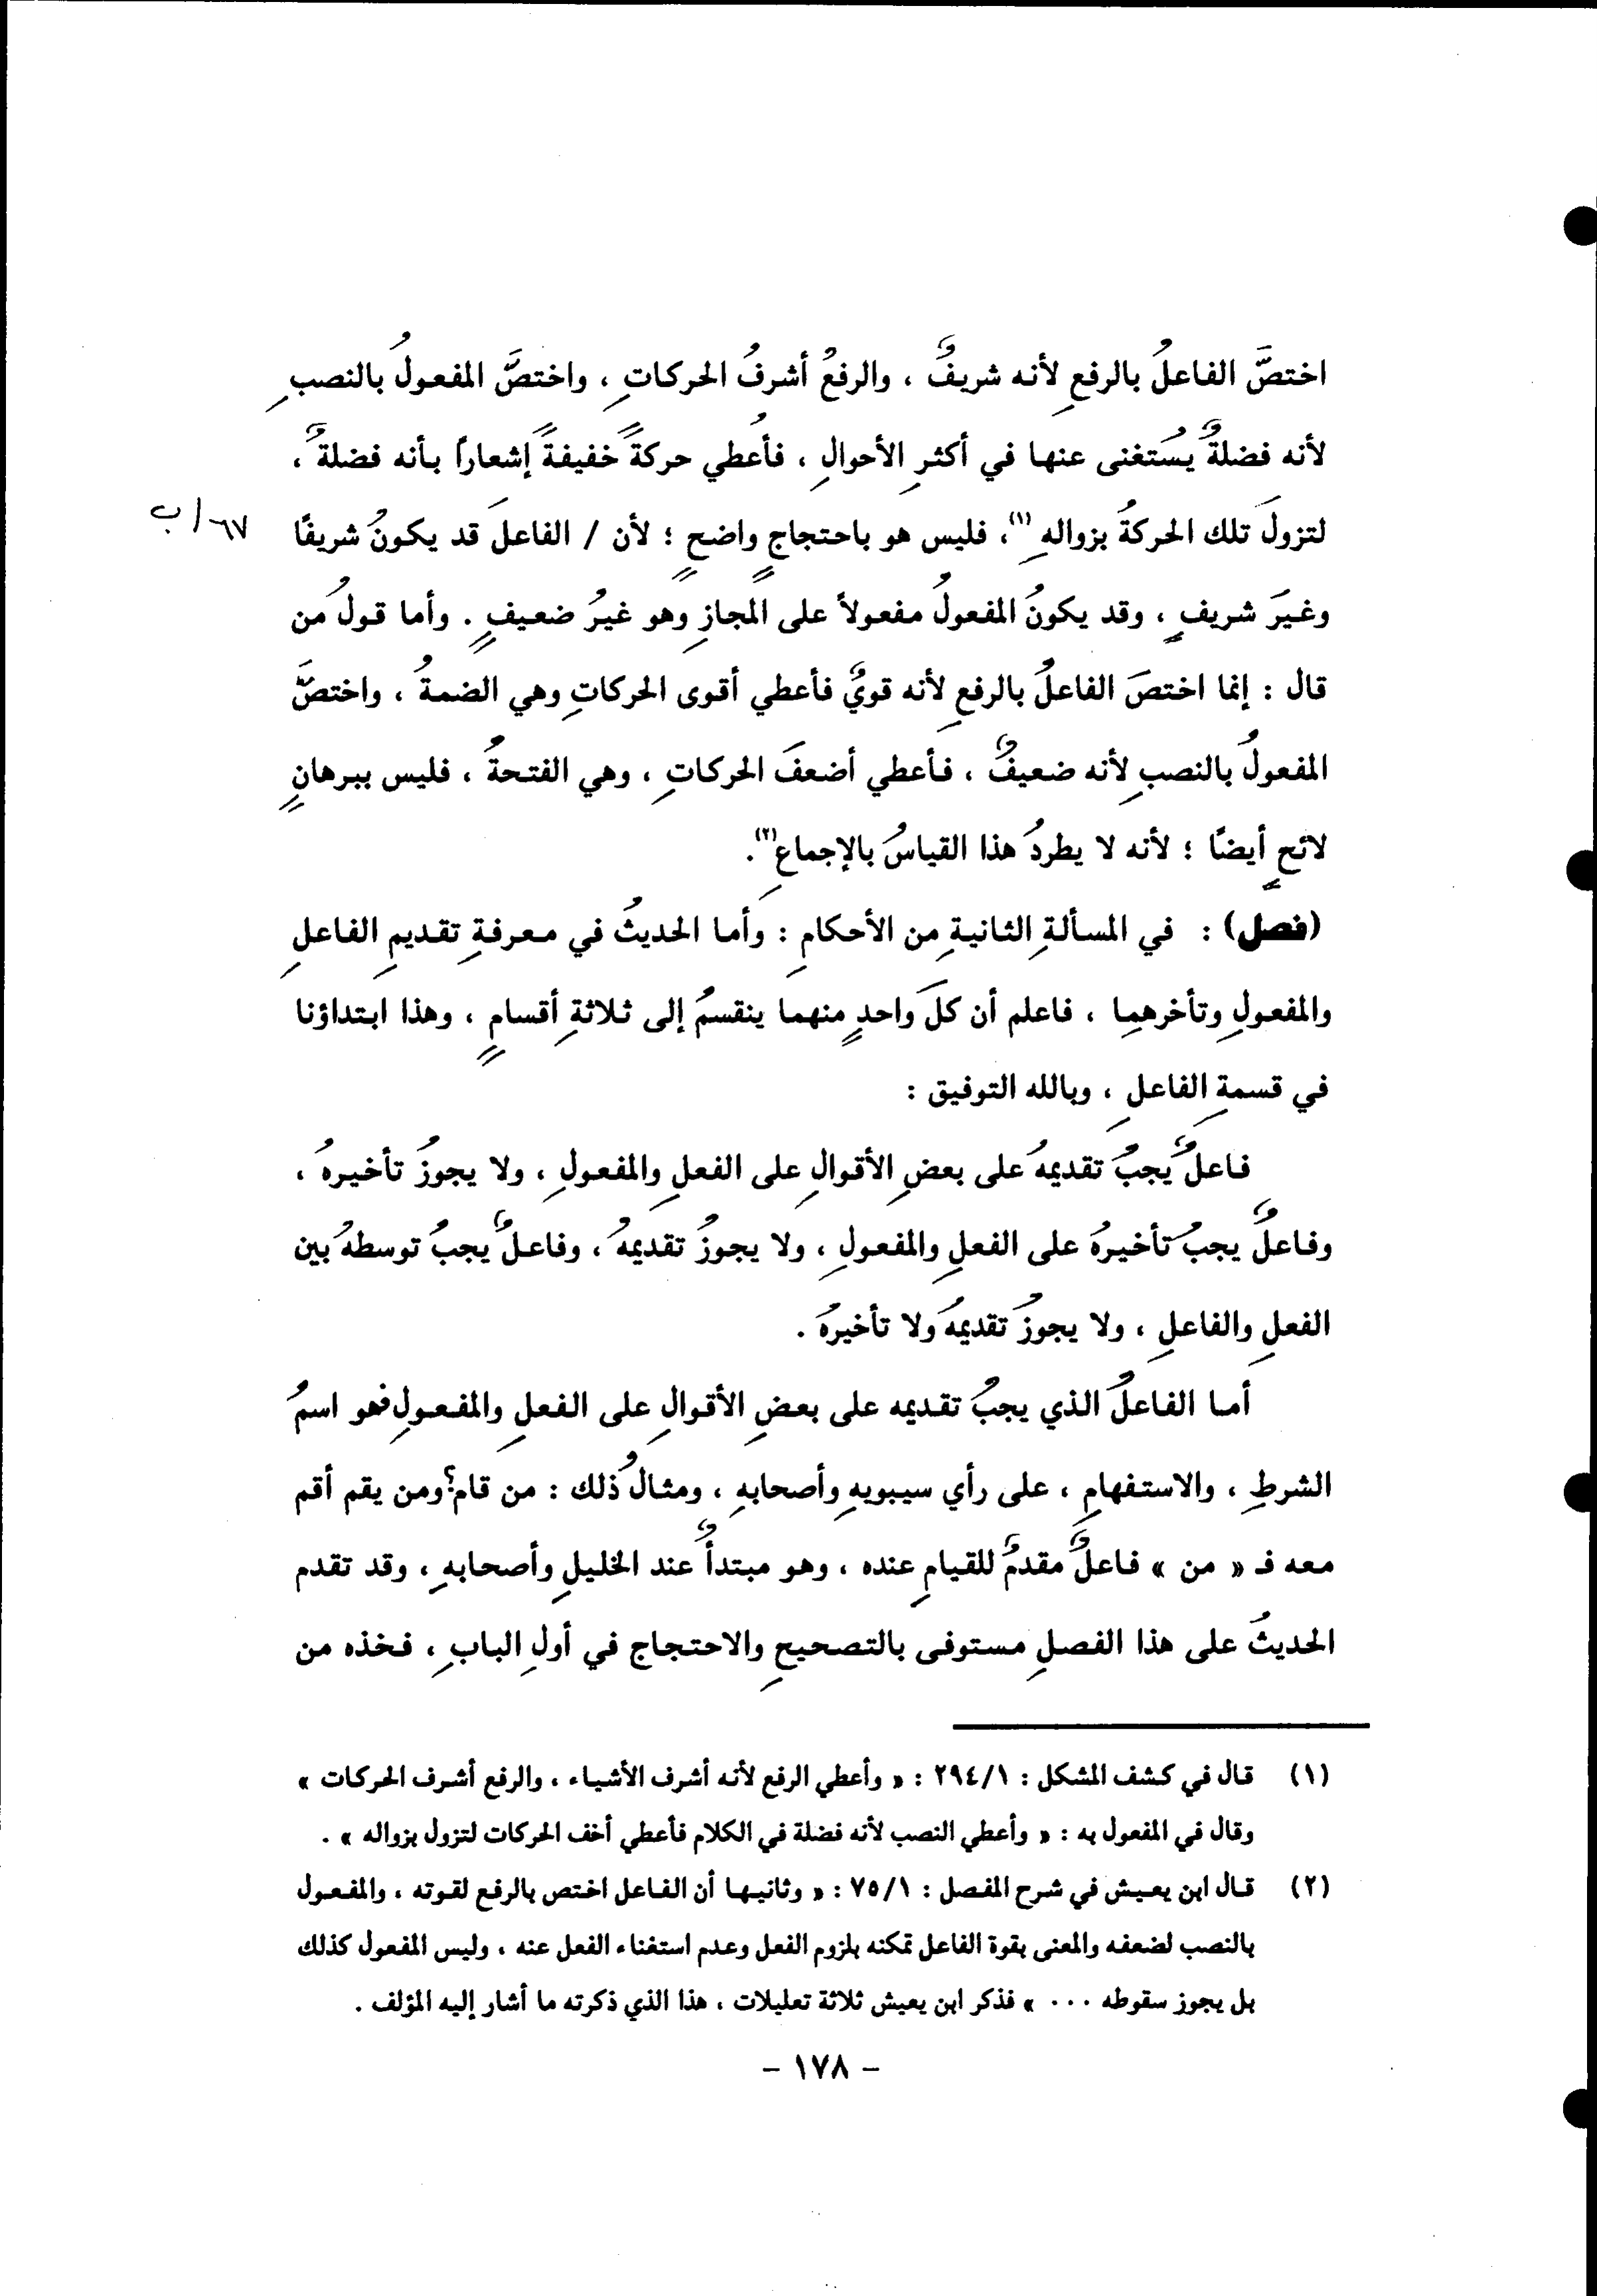 اختصَّ الفاعلُ بالرفعِ لأنه شريفٌ ، والرفعُ أشرفُ الحركاتِ ، واختصَّ المفعولُ بالنصبِ
لأنه فضلةٌ يُستغنى عنها في أكثرِ الأحوالِ ، فأُعطي حركةً خفيفةً إشعاراً بأنه فضلةٌ ،
لتزولَ تلك الحركةُ بزوالهِ (١)، فليس هو باحتجاجٍ واضحٍ ؛ لأن / الفاعلَ قد يكونُ شريفًا
٦٧/ب
وغيرَ شريفٍ ، وقد يكونُ المفعولُ مفعولاً على المجازِ وهو غيرُ ضعيفٍ . وأما قولُ من
قال : إنما اختصَ الفاعلُ بالرفعِ لأنه قويٌ فأعطي أقوى الحركاتِ وهي الضمةُ ، واختصَّ
المفعولُ بالنصبِ لأنه ضعيفٌ ، فأعطي أضعفَ الحركاتِ ، وهي الفتحةُ ، فليس ببرهانٍ
لائحٍ أيضًا ؛ لأنه لا يطردُ هذا القياسُ بالإجماعِ (٢).
(فصل) : في المسألةِ الثانيةِ من الأحكامِ : وأما الحديثُ في معرفةِ تقديمِ الفاعلِ
والمفعولِ وتأخرهمِا ، فاعلم أن كلَ واحدٍ منهما ينقسمُ إلى ثلاثةِ أقسامٍ ، وهذا ابتداؤنا
في قسمةِ الفاعلِ ، وبالله التوفيق :
فاعلٌ يجبُ تقديمهُ على بعضِ الأقوالِ على الفعلِ والمفعولِ ، ولا يجوزُ تأخيرهُ ،
وفاعلٌ يجبُ تأخيرهُ على الفعلِ والمفعولِ ، ولا يجوزُ تقديمهُ ، وفاعلٌ يجبُ توسطهُ بين
الفعلِ والفاعلِ ، ولا يجوزُ تقديمهُ ولا تأخيرهُ .
أما الفاعلُ الذي يجبُ تقديمه على بعضِ الأقوالِ على الفعلِ والمفعولِ فهو اسمُ
الشرطِ ، والاستفهامِ ، على رأي سيبويهِ وأصحابهِ ، ومثالُ ذلك : من قام؟ ومن يقم أقم
معه فـ « من » فاعلٌ مقدمٌ للقيامِ عنده ، وهو مبتدأٌ عند الخليلِ وأصحابهِ ، وقد تقدم
الحديثُ على هذا الفصلِ مستوفى بالتصحيحِ والاحتجاج في أولِ البابِ ، فخذه من
(١) قال في كشف المشكل : ٢٩٤/١ : « وأعطي الرفع لأنه أشرف الأشياء ، والرفع أشرف الحركات »
وقال في المفعول به : « وأعطي النصب لأنه فضلة في الكلام فأعطي أخف الحركات لتزول بزواله » .
(٢) قال ابن يعيش في شرح المفصل : ٧٥/١ : « وثانيها أن الفاعل اختص بالرفع لقوته ، والمفعول
بالنصب لضعفه والمعنى بقوة الفاعل تمكنه بلزوم الفعل وعدم استغناء الفعل عنه ، وليس المفعول كذلك
بل يجوز سقوطه ... » فذكر ابن يعيش ثلاثة تعليلات ، هذا الذي ذكرته ما أشار إليه المؤلف .
- ١٧٨ -